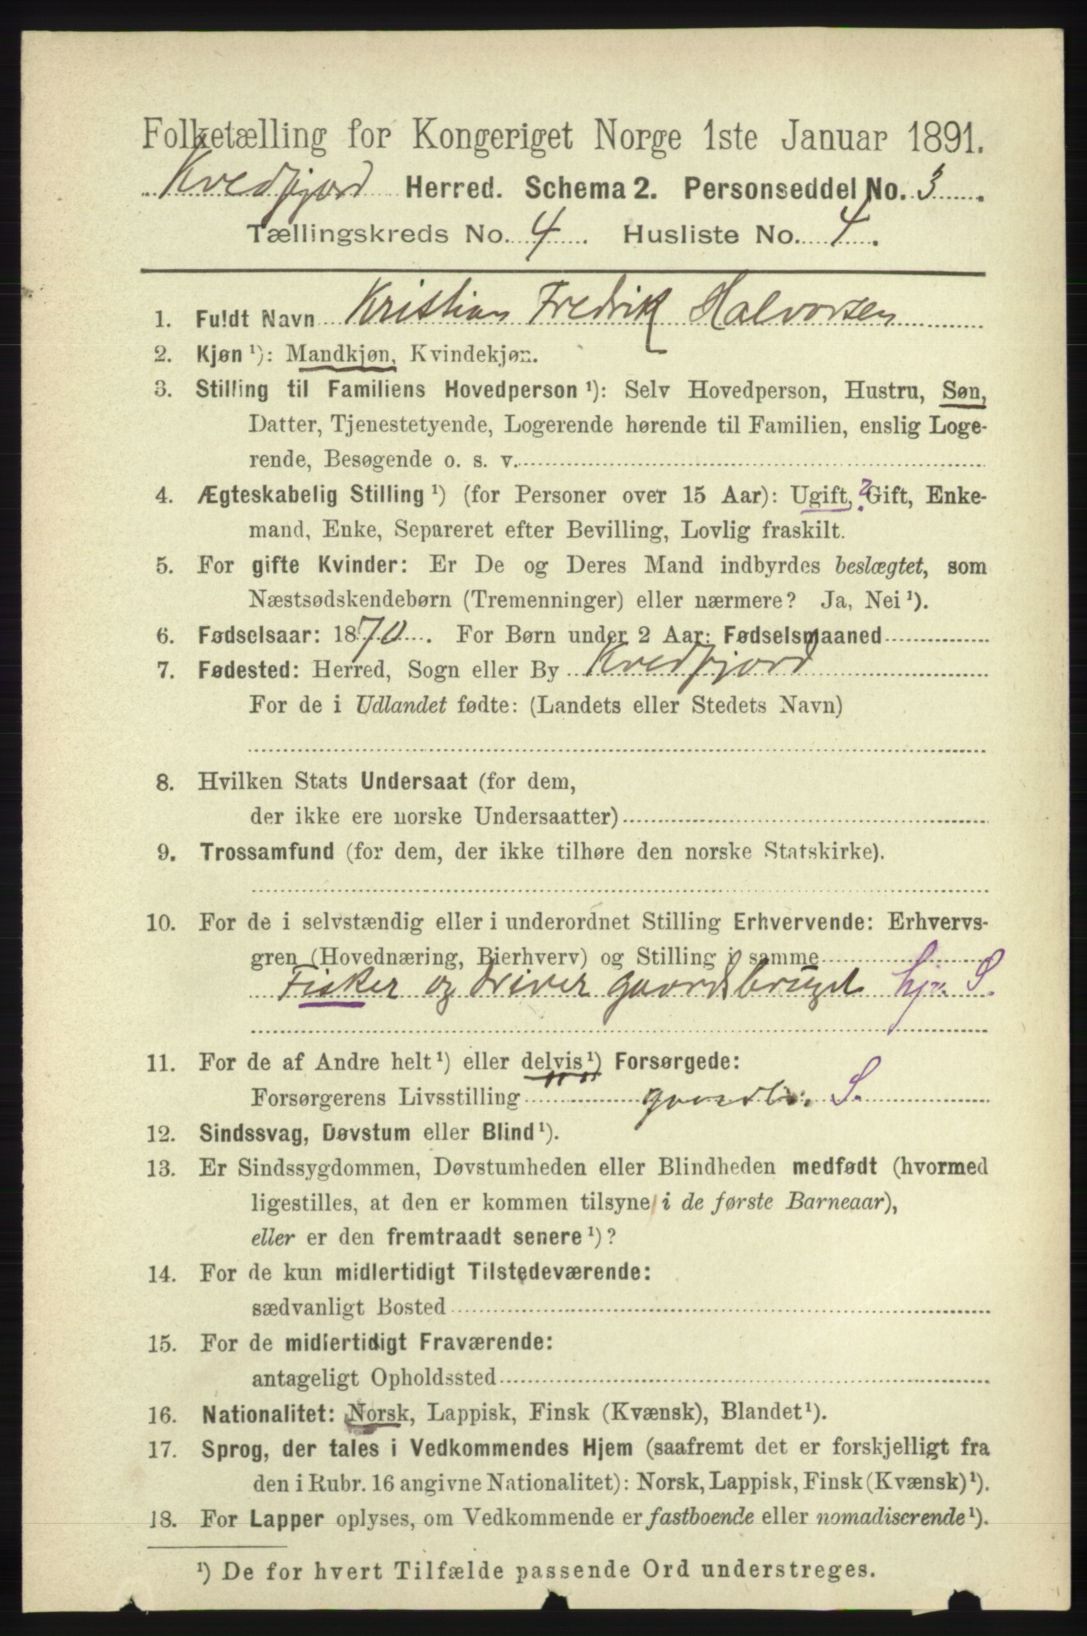 Folketælling for Kongeriget Norge 1ste Januar 1891.
Kvedfjord Herred. Schema 2. Personseddel No. 3.
Tællingskreds No. 4. Husliste No. 4.
1. Fuldt Navn Kristian Fredrik Halvorsen
2. Kjøn ¹): Mandkjøn, Kvindekjøn.
3. Stilling til Familiens Hovedperson ¹): Selv Hovedperson, Hustru, Søn,
Datter, Tjenestetyende, Logerende hørende til Familien, enslig Loge-
rende, Besøgende o. s. v.
4. Ægteskabelig Stilling ¹) (for Personer over 15 Aar): Ugift, ? Gift, Enke-
mand, Enke, Separeret efter Bevilling, Lovlig fraskilt.
5. For gifte Kvinder: Er De og Deres Mand indbyrdes beslægtet, som
Næstsødskendebørn (Tremenninger) eller nærmere? Ja, Nei ¹).
6. Fødselsaar: 1870. For Børn under 2 Aar: Fødselsmaaned
7. Fødested: Herred, Sogn eller By Kvedfjord
For de i Udlandet fødte: (Landets eller Stedets Navn)
8. Hvilken Stats Undersaat (for dem,
der ikke ere norske Undersaatter)
9. Trossamfund (for dem, der ikke tilhøre den norske Statskirke).
10. For de i selvstændig eller i underordnet Stilling Erhvervende: Erhvervs-
gren (Hovednæring, Bierhverv) og Stilling i samme
Fisker og driver gaardsbruget hj. S.
11. For de af Andre helt ¹) eller delvis ¹) Forsørgede:
Forsørgerens Livsstilling gaardbr. S.
12. Sindssvag, Døvstum eller Blind ¹).
13. Er Sindssygdommen, Døvstumheden eller Blindheden medfødt (hvormed
ligestilles, at den er kommen tilsyne i de første Barneaar),
eller er den fremtraadt senere ¹)?
14. For de kun midlertidigt Tilstedeværende:
sædvanligt Bosted
15. For de midlertidigt Fraværende:
antageligt Opholdssted
16. Nationalitet: Norsk, Lappisk, Finsk (Kvænsk), Blandet ¹).
17. Sprog, der tales i Vedkommendes Hjem (saafremt det er forskjelligt fra
den i Rubr. 16 angivne Nationalitet): Norsk, Lappisk, Finsk (Kvænsk) ¹).
18. For Lapper oplyses, om Vedkommende er fastboende eller nomadiserende ¹).
¹) De for hvert Tilfælde passende Ord understreges.